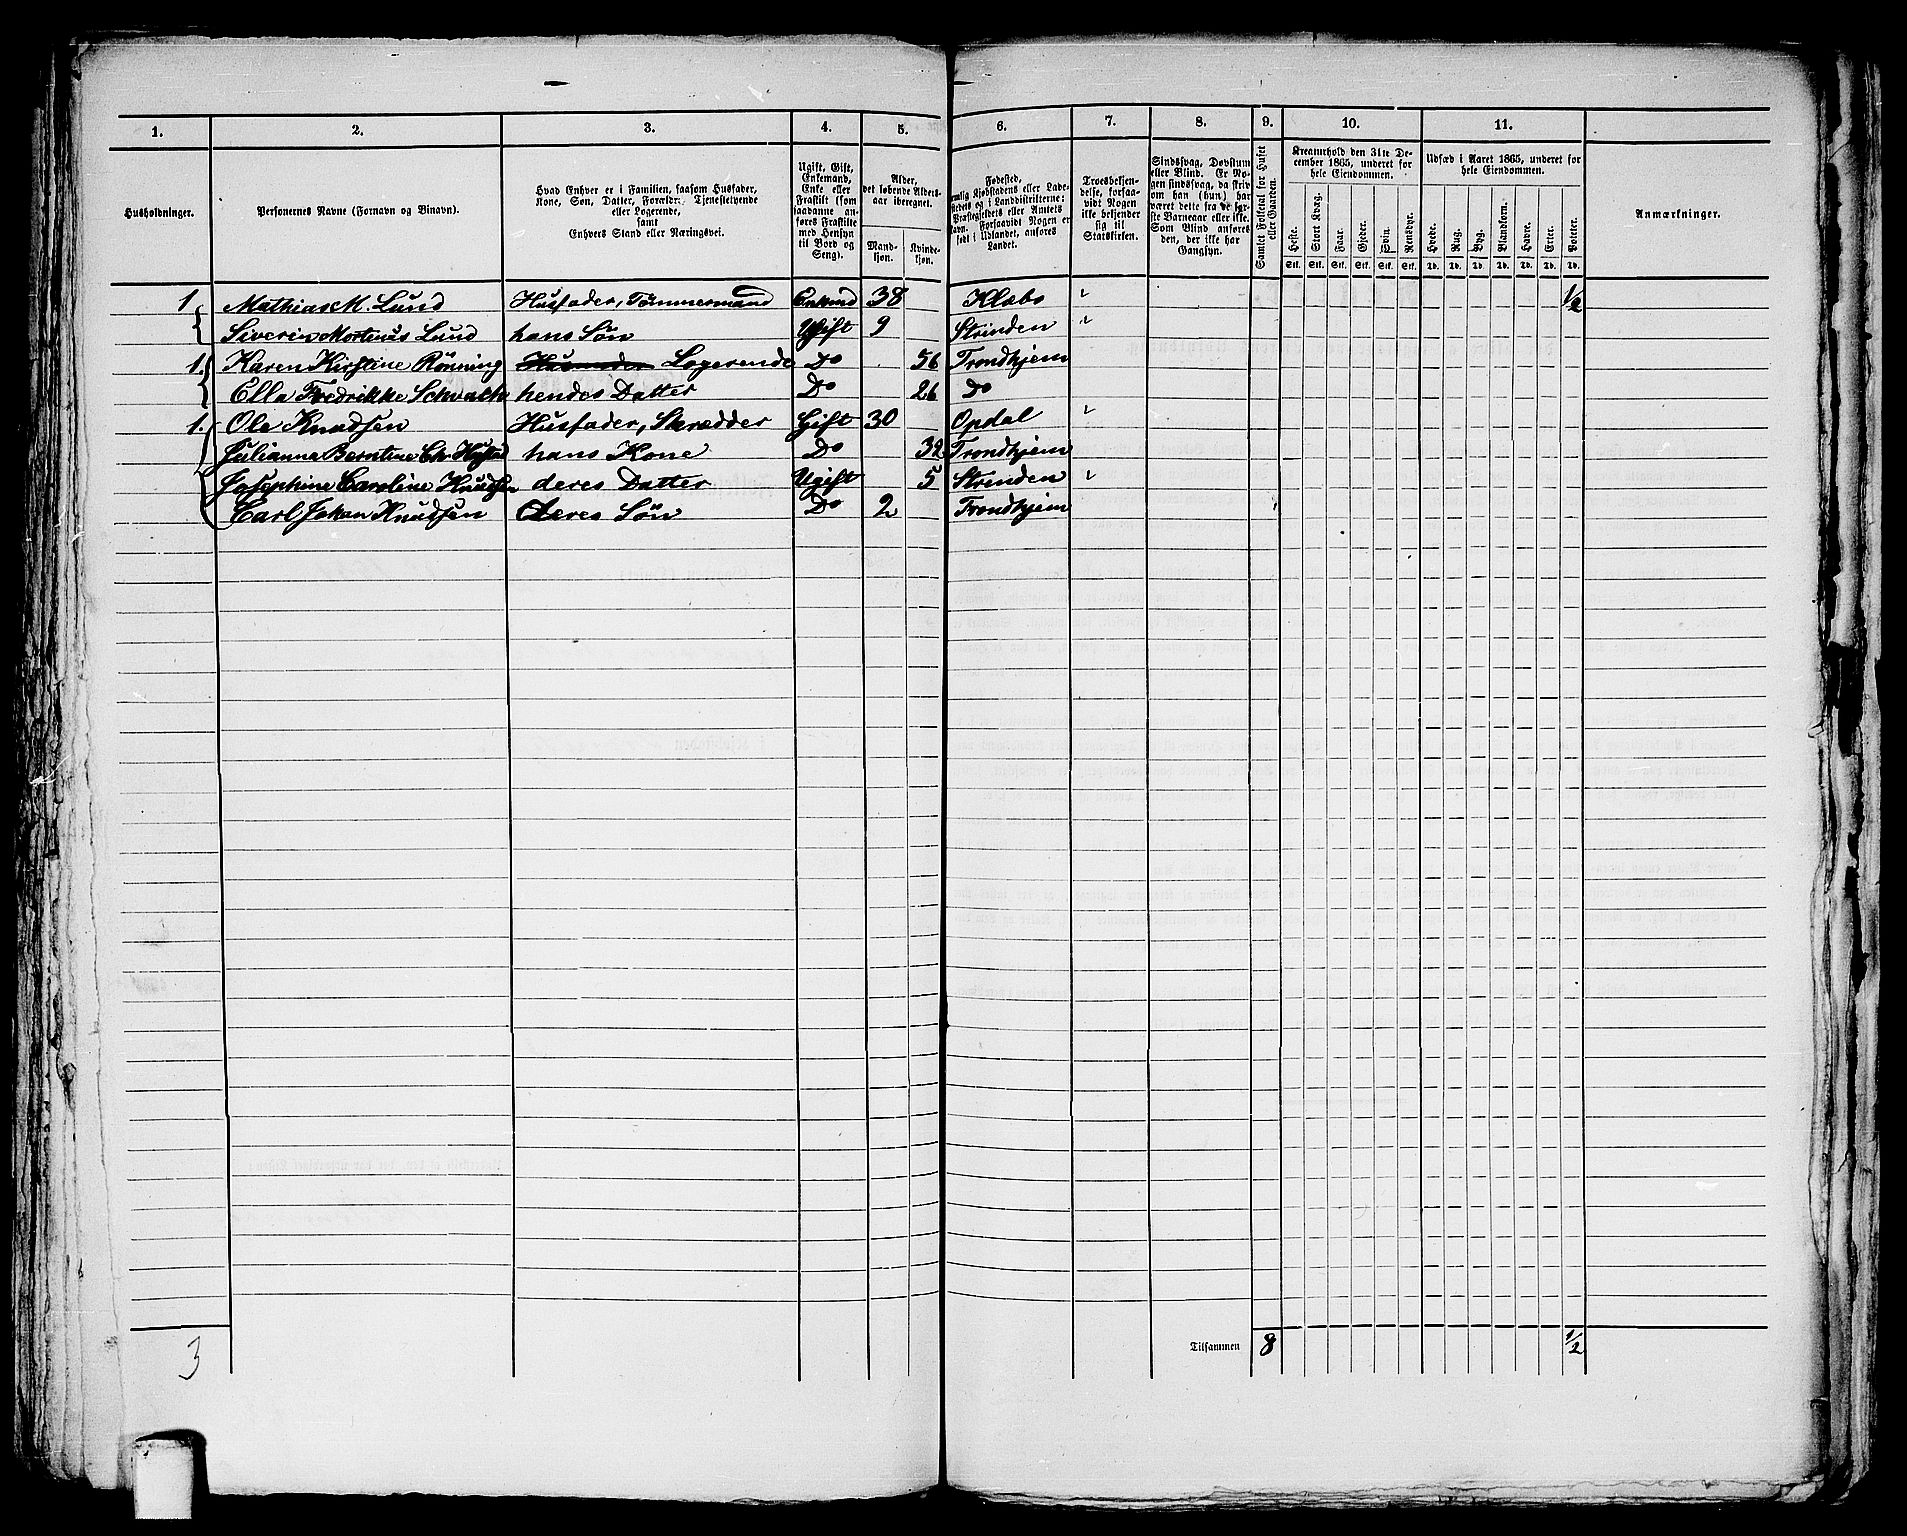 1. 2. 3. 4. 5. 6. 7. 8. 9. 10. 11.
Husholdninger.
Personernes Navne (Fornavn og Binavn).
Hvad Enhver er i Familien, saasom Husfader,
Kone, Søn, Datter, Forældre, Tjenestetyende
eller Logerende,
samt
Enhvers Stand eller Næringsvei.
Ugift, Gift,
Enkemand,
Enke eller
Fraskilt (som
saadanne an-
føres Fraskilte
med Hensyn
til Bord og
Seng).
Alder,
det løbende Alders-
aar iberegnet.
Mand-
kjøn.
Kvinde-
kjøn.
Fødested,
nemlig Kjøbstadens eller Lade-
stedets og i Landdistrikterne:
Præstegjeldets eller Amtets
Navn. Forsaavidt Nogen er
født i Udlandet, anføres
Landet.
Troesbekjen-
delse, forsaa-
vidt Nogen
ikke bekjender
sig til
Statskirken.
Sindssvag, Døvstum
eller Blind. Er No-
gen sindssvag, da skriv
om han (hun) har
været dette fra de før-
ste Barneaar eller ikke.
Som Blind anføres
den, der ikke har
Gangsyn.
Samlet Folketal for Huset
eller Gaarden.
Kreaturhold den 31te De-
cember 1865, underet for
hele Eiendommen.
Heste. Stort Kvæg. Faar. Gjeder. Svin. Rensdyr.
Stk. Stk. Stk. Stk. Stk. Stk.
Udsæd i Aaret 1865, underet for
hele Eiendommen.
Hvede. Rug. Byg. Blandkorn. Havre. Erter. Poteter.
Td. Td. Td. Td. Td. Td. Td.
Anmærkninger.
1 Mathias M. Lund Husfader, Tømmermand Enkemd 38 Klæbo " 1/2
Siverin Martinus Lund hans Søn Ugift 9 Strinden "
1. Karen Kirstine Rönning Logerende Do 56 Trondhjem
Ella Fredrikke Schvalb hendes Datter Do 26 Do
1. Ole Knudsen Husfader, Skrædder Gift 30 Opdal "
Julianna Berntine Chr hans Kone Do 32 Trondhjem
Josephine Caroline Knudsen deres Datter Ugift 5 Strinden "
Carl Johan Knudsen deres Søn Do 2 Trondhjem
3 Tilsammen 8 1/2